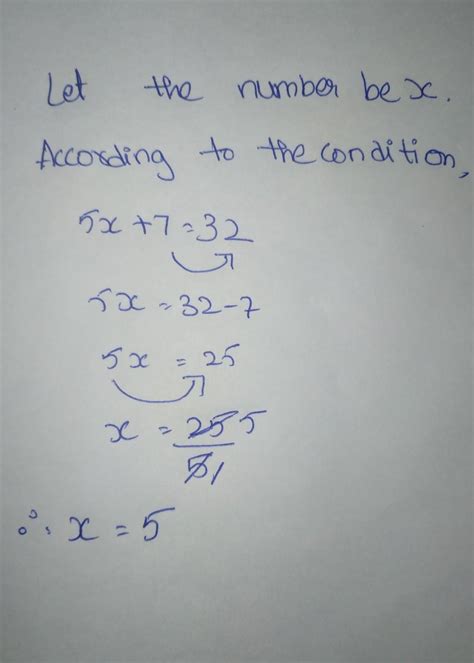 Let the number be x.
According to the condition,
5x + 7 = 32
5x = 32 - 7
5x = 25
x = 25 5
51
∴ x = 5